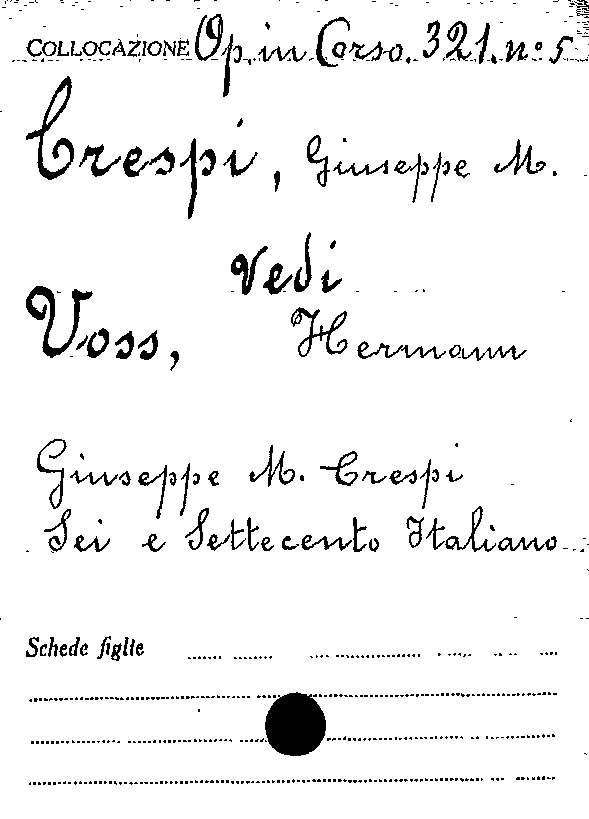 COLLOCAZIONE Op. in Corso. 321. n° 5
Crespi, Giuseppe M.
vedi
Voss, Hermann
Giuseppe M. Crespi
Sei e Settecento Italiano
Schede figlie